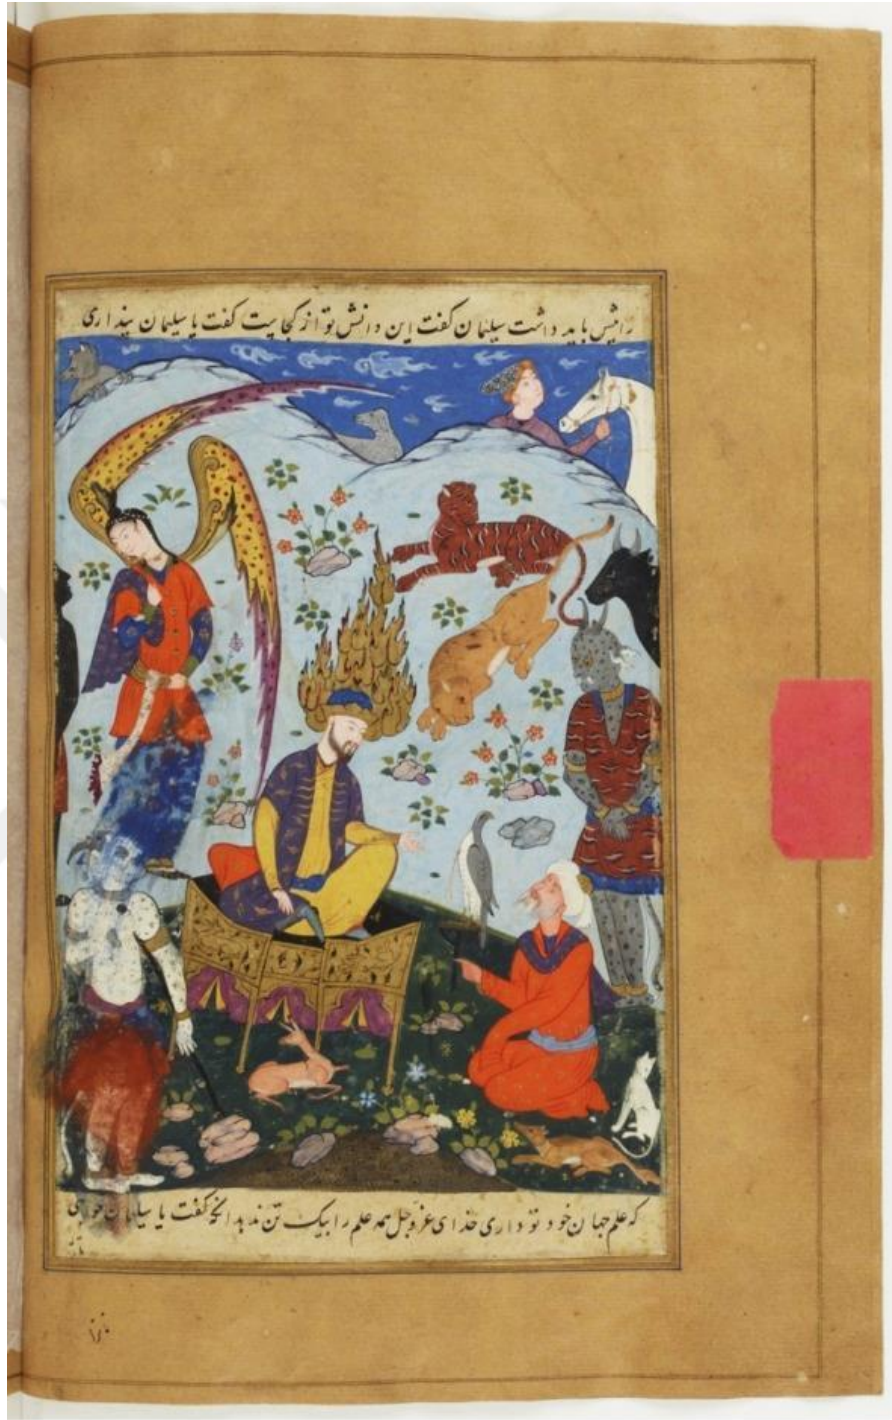 رانیش باید داشت سیلمان کفت این دانش تو از کجاست کفت یا سیلمان پنداری
که علم جهان خود تو داری خدای عز و جل همه علم را بیک تن ندهد انکه کفت یا سیلمان